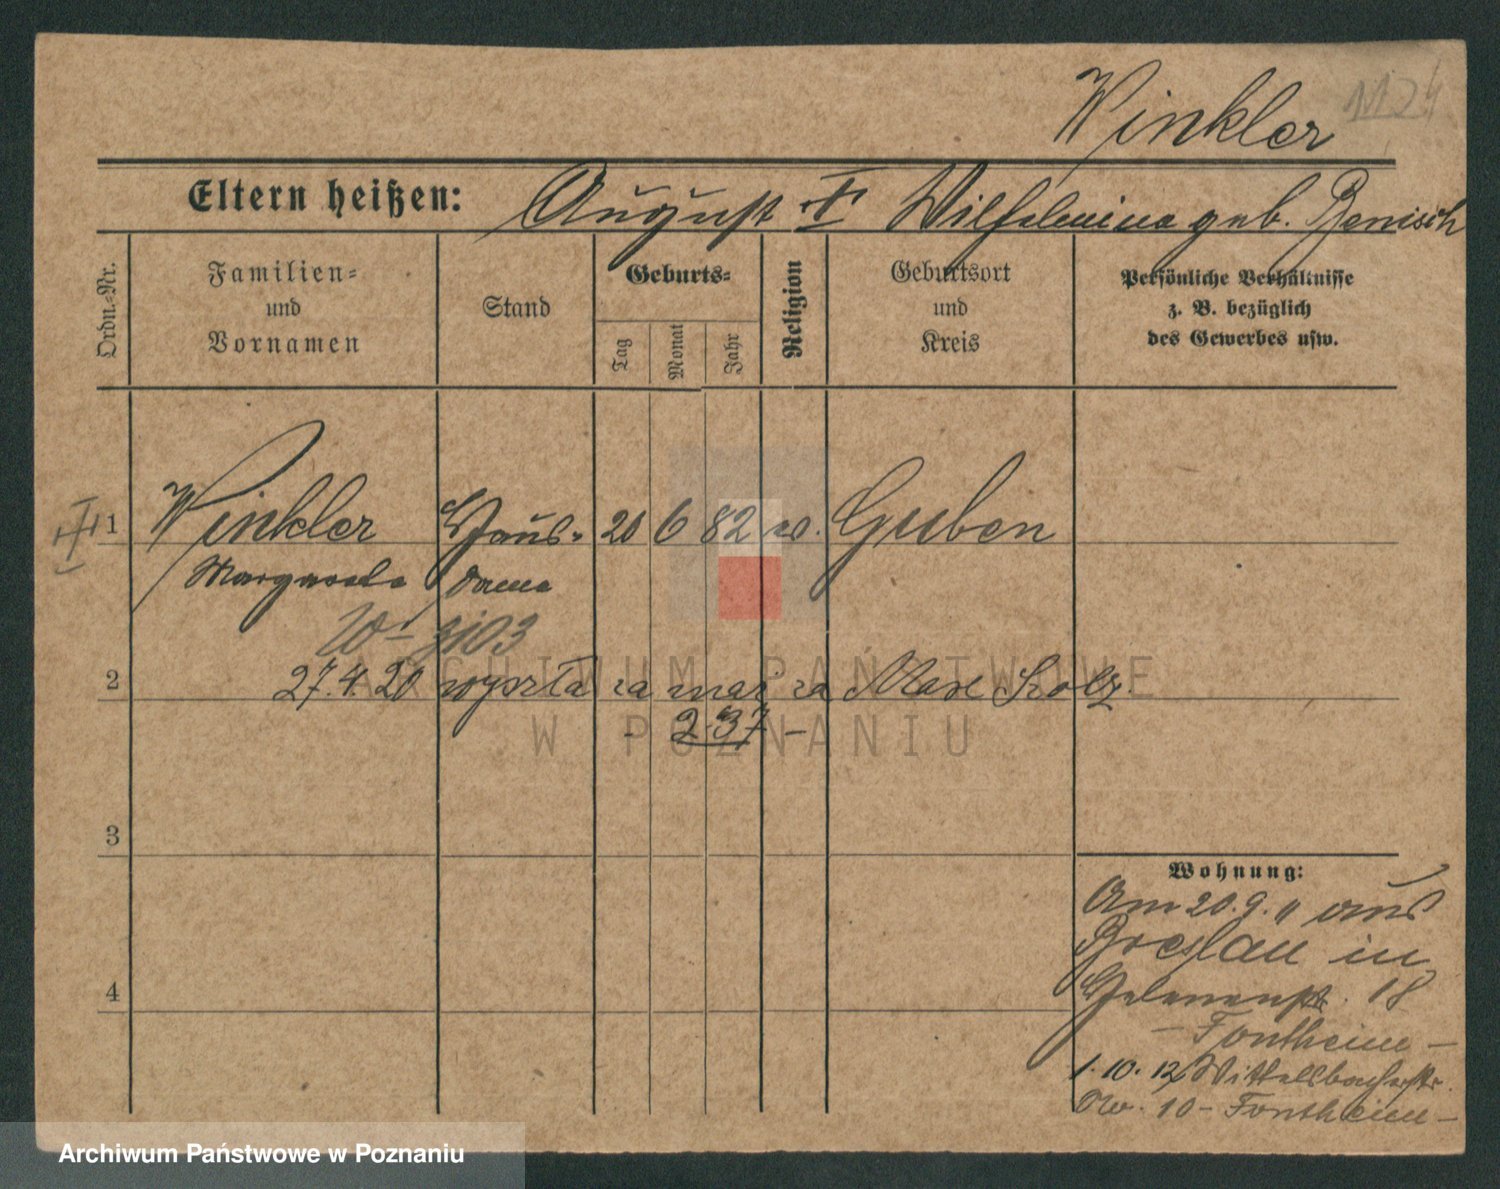 Winkler
Eltern heißen: August Wilhelmina geb. Benisch
Ordn.-Nr.
Familien-
und
Vornamen
Stand
Geburts-
Tag
Monat
Jahr
Religion
Geburtsort
und
Kreis
Persönliche Verhältnisse
z. B. bezüglich
des Gewerbes usw.
1 Winkler Haus- 20 6 82 ev. Guben
Margarete dame
2 27.4.20 wyszła za mąż za Max Scholz
- 2.37 -
3
4
Wohnung:
Am 20.9.11 aus
Breslau in
Helenenstr. 18
- Fontheim -
1.10.12 Wittelsbacherstr.
No. 10 - Fontheim -
ARCHIWUM PAŃSTWOWE
W POZNANIU
Archiwum Państwowe w Poznaniu